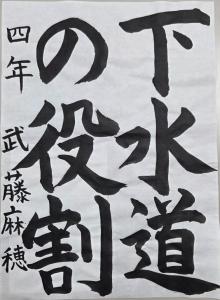 下水道
の役割
四年 武藤麻穂